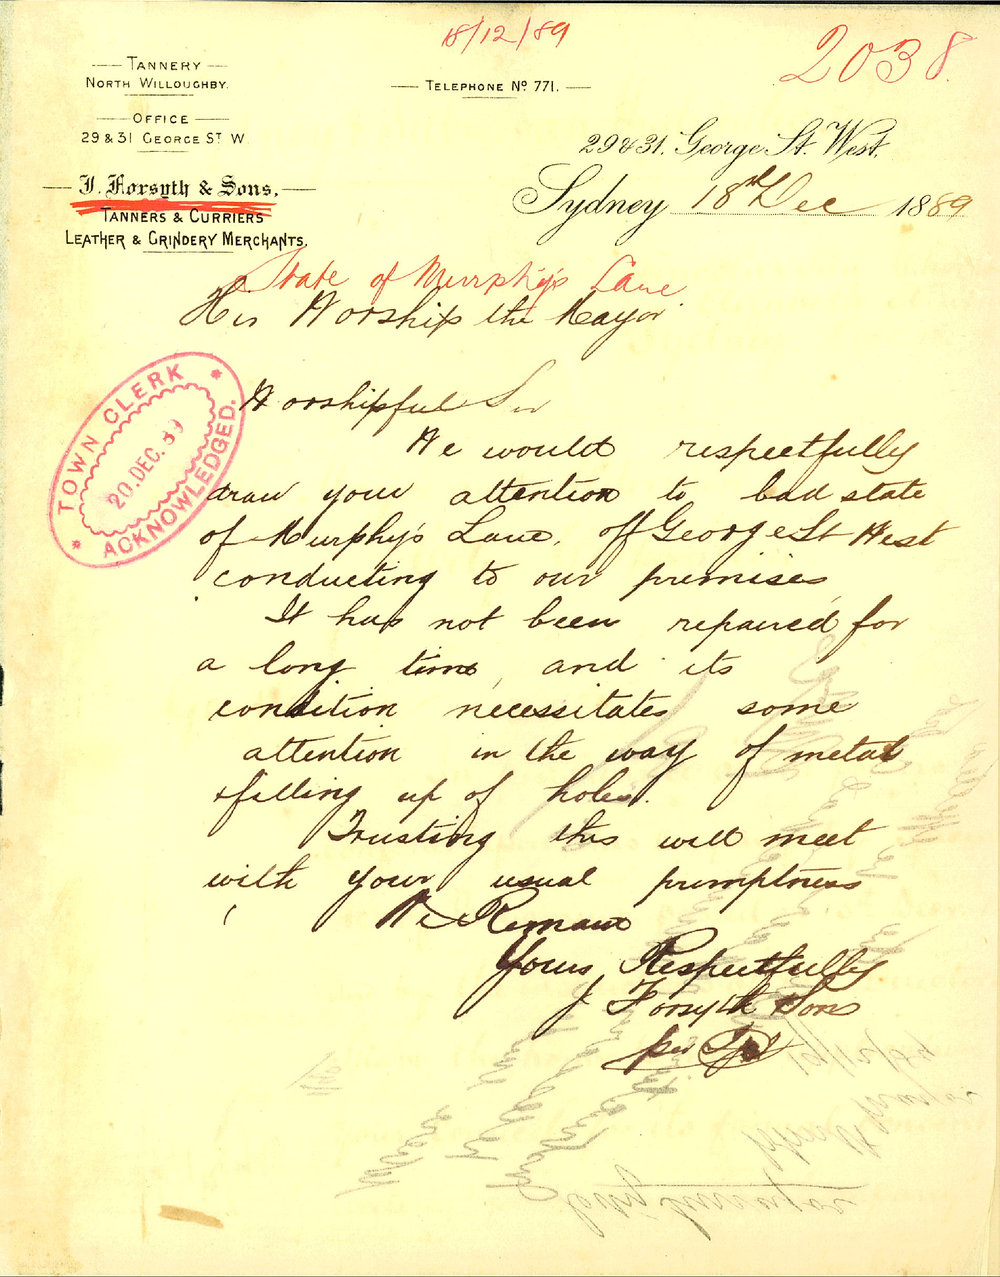 18/12/89
2038
TANNERY
NORTH WILLOUGHBY.
TELEPHONE No 771.
OFFICE
29 & 31 GEORGE ST W
29 & 31. George St. West.
J. Forsyth & Sons,
Sydney 18th Dec 1889
TANNERS & CURRIERS
LEATHER & GRINDERY MERCHANTS.
State of Murphy's Lane
His Worship the Mayor
TOWN CLERK
20. DEC. 89
ACKNOWLEDGED.
Worshipful Sir
We would respectfully
draw your attention to bad state
of Murphy's Lane, off George St West
conducting to our premises
It has not been repaired for
a long time, and its
condition necessitates some
attention in the way of metal
& filling up of holes.
Trusting this will meet
with your usual promptness
We Remain
Yours Respectfully
J Forsyth & Sons
per